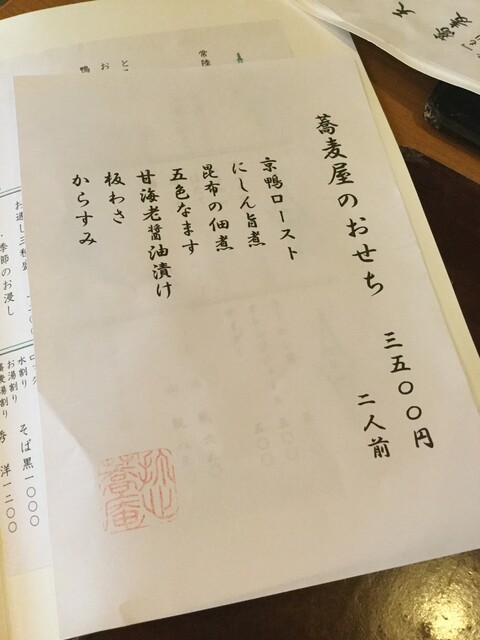 蕎麦屋のおせち 三五〇〇円
二人前
京鴨ロースト
にしん旨煮
昆布の佃煮
五色なます
甘海老醤油漬け
板わさ
からすみ
常陸
と
鴨
お
季節のお浸し
水割り
お湯割り
蕎麦湯割り
そば黒一〇〇〇
一二〇〇
蕎麦
天